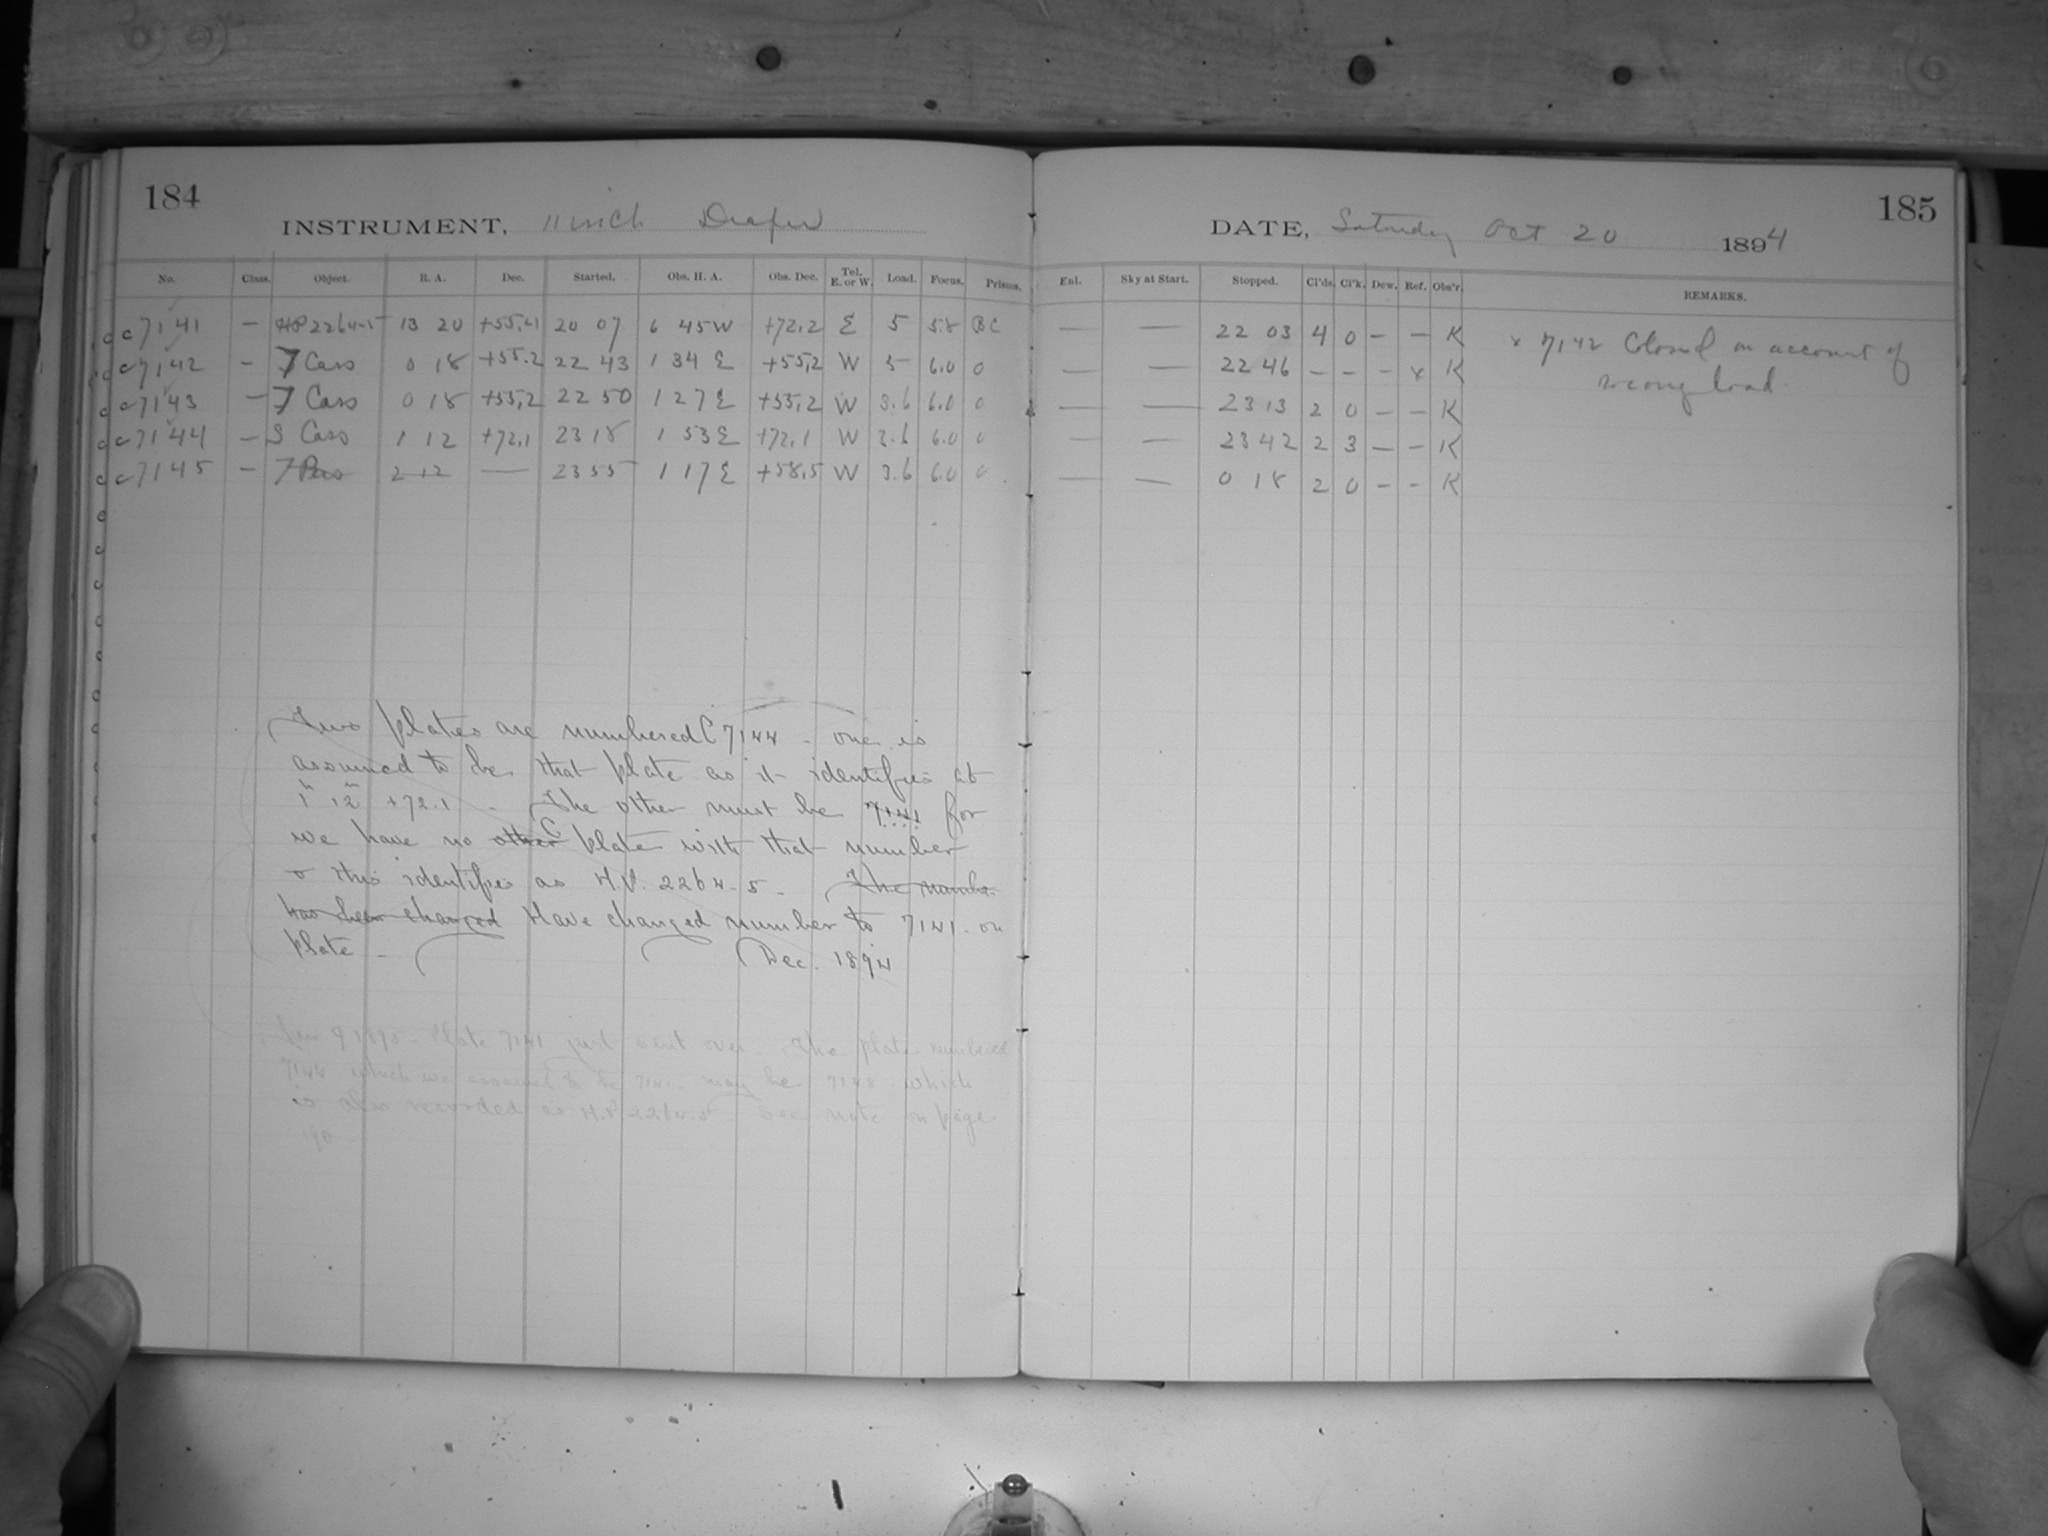 184
INSTRUMENT, 11 inch Draper
No. Class. Object. R. A. Dec. Started. Obs. H. A. Obs. Dec. Tel. E. or W. Load. Focus. Prisms.
c 7141 — HP 2264-5 13 20 +55.41 20 07 6 45 W +72.2 E 5 5.8 BC
c 7142 — T Cass 0 18 +55.2 22 43 1 34 E +55.2 W 5 6.0 0
c 7143 — T Cass 0 18 +55.2 22 50 1 27 E +55.2 W 3.6 6.0 0
c 7144 — S Cass 1 12 +72.1 23 18 1 53 E +72.1 W 3.6 6.0 0
c 7145 — T Pers 2 12 — 23 55 1 17 E +58.5 W 3.6 6.0 0
Two plates are numbered C 7144 - one is
assumed to be that plate as it identifies at
1h 12m +72.1 - The other must be 7141 for
we have no other C plate with that number
& this identifies as H.P. 2264-5 - The number
has been changed Have changed number to 7141 on
plate -
Dec. 1894
Jan 9 1895 - Plate 7141 just sent over - The plate numbered
7144 which we assumed to be 7141 may be 7148 which
is also recorded as H.P. 2264-5 - See note on page
190
185
DATE, Saturday Oct 20 1894
Enl. Sky at Start. Stopped. Cl'ds. Cl'k. Dew. Ref. Obs'r. REMARKS.
— — 22 03 4 0 — — K
— — 22 46 — — — x K
— — 23 13 2 0 — — K
— — 23 42 2 3 — — K
— — 0 18 2 0 — — K
x 7142 Closed on account of
wrong load.